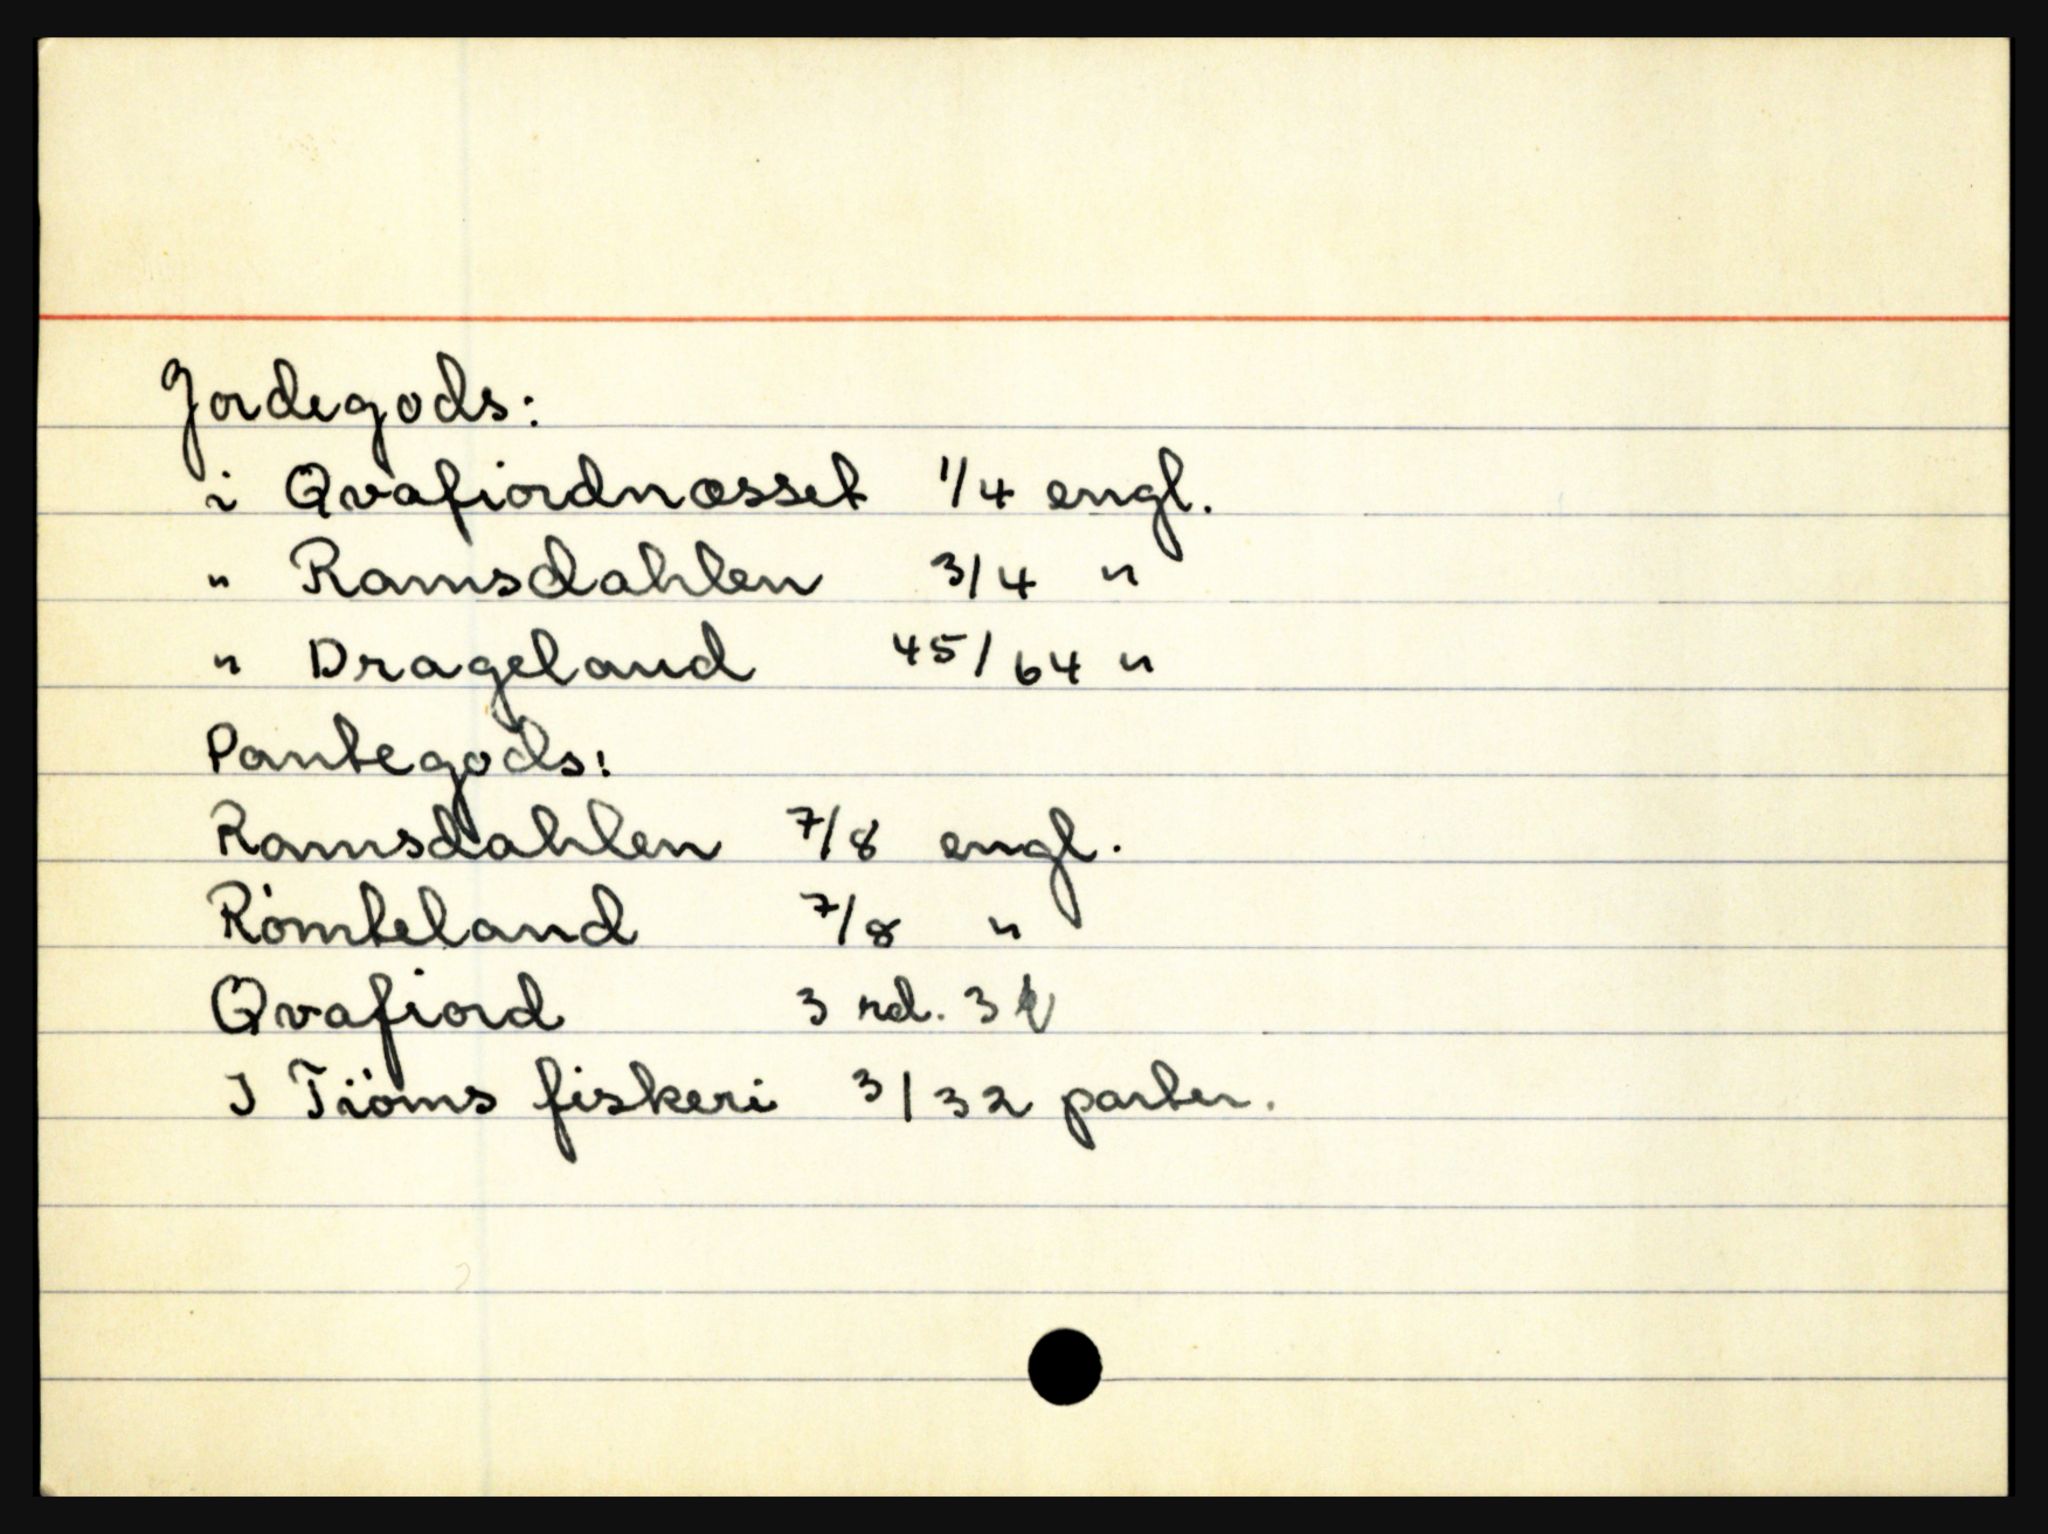 Jordegods:
i Qvafiordnæsset 1/4 engl.
" Ramsdahlen 3/4 "
" Drageland 45/64 "
Pantegods:
Ramsdahlen 7/8 engl.
Römteland 7/8 "
Qvafiord 3 rd. 3
I Tiöms fiskeri 3/32 parter.